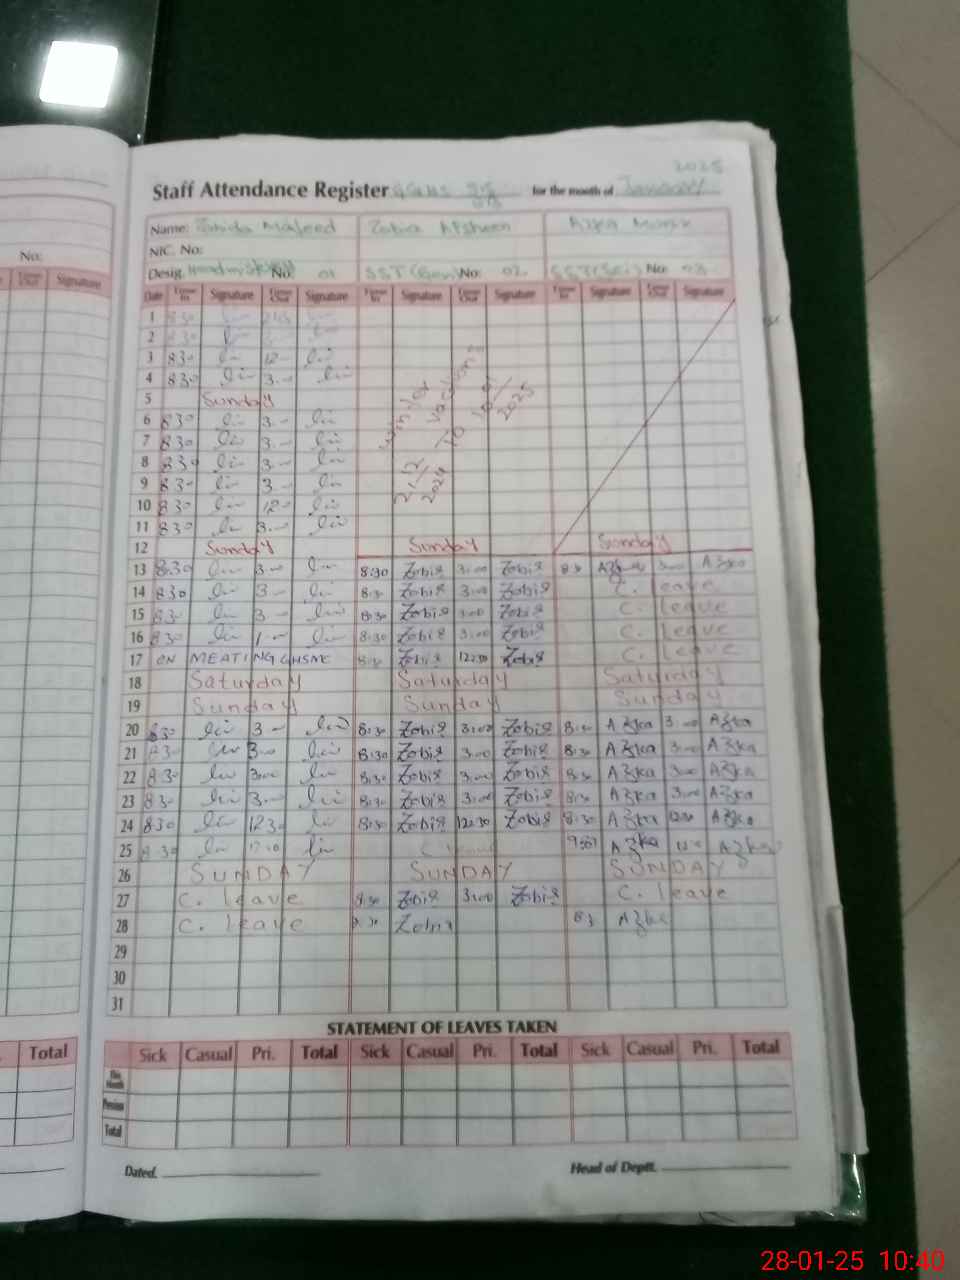 2025
Staff Attendance Register GGHS for the month of January
Name: Zahida Majeed Zobia Afsheen Azka
NIC. No:
No:
Desig. Headmistress No: 01 SST(Gen) No: 02 SST(Sci) No: 03
Signature
Date Time In Signature Time Out Signature Time In Signature Time Out Signature Time In Signature Time Out Signature
1 830
2 830
3 830 12-
4 830 3.00
5 Sunday
6 830 3.00
7 830 3.00
8 830 3-
9 830 3-
10 830 12-
11 830 3.00
winter vacations
21-12 2024 To 10-01 2025
12 Sunday Sunday Sunday
13 8:30 3.00 8:30 Zobia 3:00 Zobia 8:30 Azka 3:00 Azka
14 830 3- 8:30 Zobia 3:00 Zobia C. leave
15 830 3- 8:30 Zobia 3:00 Zobia C. leave
16 830 1-00 8:30 Zobia 3:00 Zobia C. leave
17 ON MEATING GHSMC 8:30 Zobia 12:30 Zobia C. leave
18 Saturday Saturday Saturday
19 Sunday Sunday Sunday
20 830 3- 8:30 Zobia 3:00 Zobia 8:30 Azka 3:00 Azka
21 830 3.00 8:30 Zobia 3:00 Zobia 8:30 Azka 3:00 Azka
22 830 3.00 8:30 Zobia 3:00 Zobia 8:30 Azka 3:00 Azka
23 830 3.00 8:30 Zobia 3:00 Zobia 8:30 Azka 3:00 Azka
24 830 1230 8:30 Zobia 12:30 Zobia 8:30 Azka 12:30 Azka
25 8:30 Azka Azka
26 SUNDAY SUNDAY SUNDAY
27 C. leave 8:30 Zobia 3:00 Zobia C. leave
28 C. leave 8:30 Zobia 8:3 Azka
29
30
31
STATEMENT OF LEAVES TAKEN
Total
Sick Casual Pri. Total Sick Casual Pri. Total Sick Casual Pri. Total
This Month
Previous
Total
Dated. Head of Deptt.
28-01-25 10:40